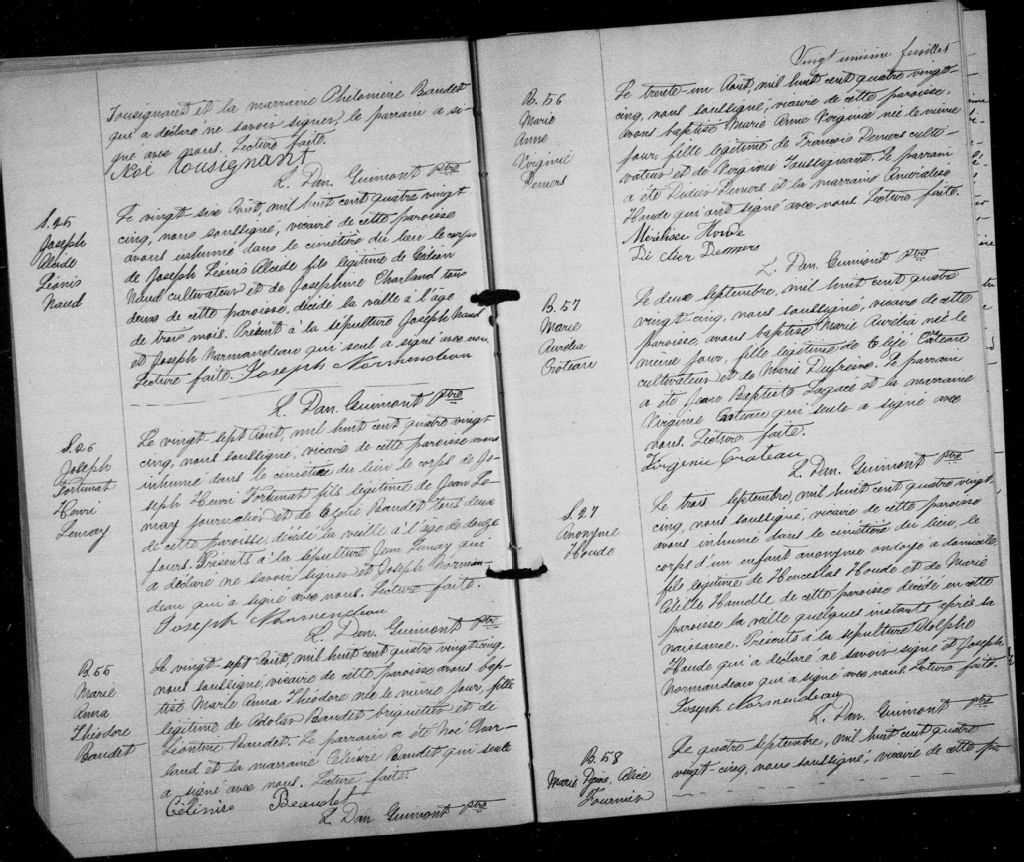 Tousignant et la marraine Philomène Baudet
qui a déclaré ne savoir signer, le parrain a si-
gné avec nous. Lecture faite.
Noé Tousignant
L. Dan. Guimont ptre
S. 25
Joseph
Alcide
Léonis
Naud
Le vingt six Août, mil huit cent quatre vingt
cinq, nous soussigné, vicaire de cette paroisse
avons inhumé dans le cimetière du lieu le corps
de Joseph Léonis Alcide fils légitime de
Naud cultivateur et de Joséphine Charland tous
deux de cette paroisse, décédé la veille à l'âge
de trois mois. Présent à la sépulture Joseph Naud
et Joseph Normandeau qui seul a signé avec nous
Lecture faite. Joseph Normendeau
L. Dan. Guimont ptre
S. 26
Joseph
Fortunat
Henri
Lemay
Le vingt sept Août, mil huit cent quatre vingt
cinq, nous soussigné, vicaire de cette paroisse avons
inhumé dans le cimetière du lieu le corps de Jo-
seph Henri Fortunat fils légitime de Jean Le-
may journalier et de Exélie Baudet tous deux
de cette paroisse, décédé la veille à l'âge de douze
jours. Présents à la sépulture Jean Lemay qui
a déclaré ne savoir signer et Joseph Norman-
deau qui a signé avec nous. Lecture faite.
Joseph Normendeau
L. Dan. Guimont ptre
B. 55
Marie
Anna
Théodore
Baudet
Le vingt sept Août, mil huit cent quatre vingt cinq,
nous soussigné, vicaire de cette paroisse avons bap-
tisé Marie Anna Théodore née le même jour, fille
légitime de Adolas Baudet briquetier et de
Léontine Baudet. Le parrain a été Noé Char-
land et la marraine Célénire Baudet qui seule
a signé avec nous. Lecture faite.
Célinire Beaudet
L. Dan. Guimont ptre
Vingt unième feuillet
B. 56
Marie
Anne
Virginie
Demers
Le trente-un Août, mil huit cent quatre vingt-
cinq, nous soussigné, vicaire de cette paroisse,
avons baptisé Marie Anne Virginie née le même
jour, fille légitime de François Demers culti-
vateur et de Virginie Toussignant. Le parrain
a été Didier Demers et la marraine
Houde qui ont signé avec nous Lecture faite.
Houde
Di dier Demers
L. Dan. Guimont ptre
B. 57
Marie
Aurélia
Croteau
Le deux septembre, mil huit cent quatre
vingt-cinq, nous soussigné, vicaire de cette
paroisse, avons baptisé Marie Aurélia née le
même jour, fille légitime de Elesé Croteau
cultivateur et de Marie Dufresne. Le parrain
a été Jean Baptiste Lagacé et la marraine
Virginie Croteau qui seule a signé avec
nous. Lecture faite.
Virginie Croteau
L. Dan. Guimont ptre
S. 27
Anonyme
Houde
Le trois septembre, mil huit cent quatre vingt-
cinq, nous soussigné, vicaire de cette paroisse
avons inhumé dans le cimetière du lieu, le
corps d'un enfant anonyme ondoyé à domicile
fils légitime de Honceslas Houde et de Marie
Odélie Hamelle de cette paroisse décédé en cette
paroisse la veille quelques instants après sa
naissance. Présents à la sépulture Adolphe
Houde qui a déclaré ne savoir signé et Joseph
Normandeau qui a signé avec nous. Lecture faite.
Joseph Normendeau
L. Dan. Guimont ptre
B. 58
Marie Alice
Fournier
Le quatre septembre, mil huit cent quatre
vingt-cinq, nous soussigné, vicaire de cette pa-